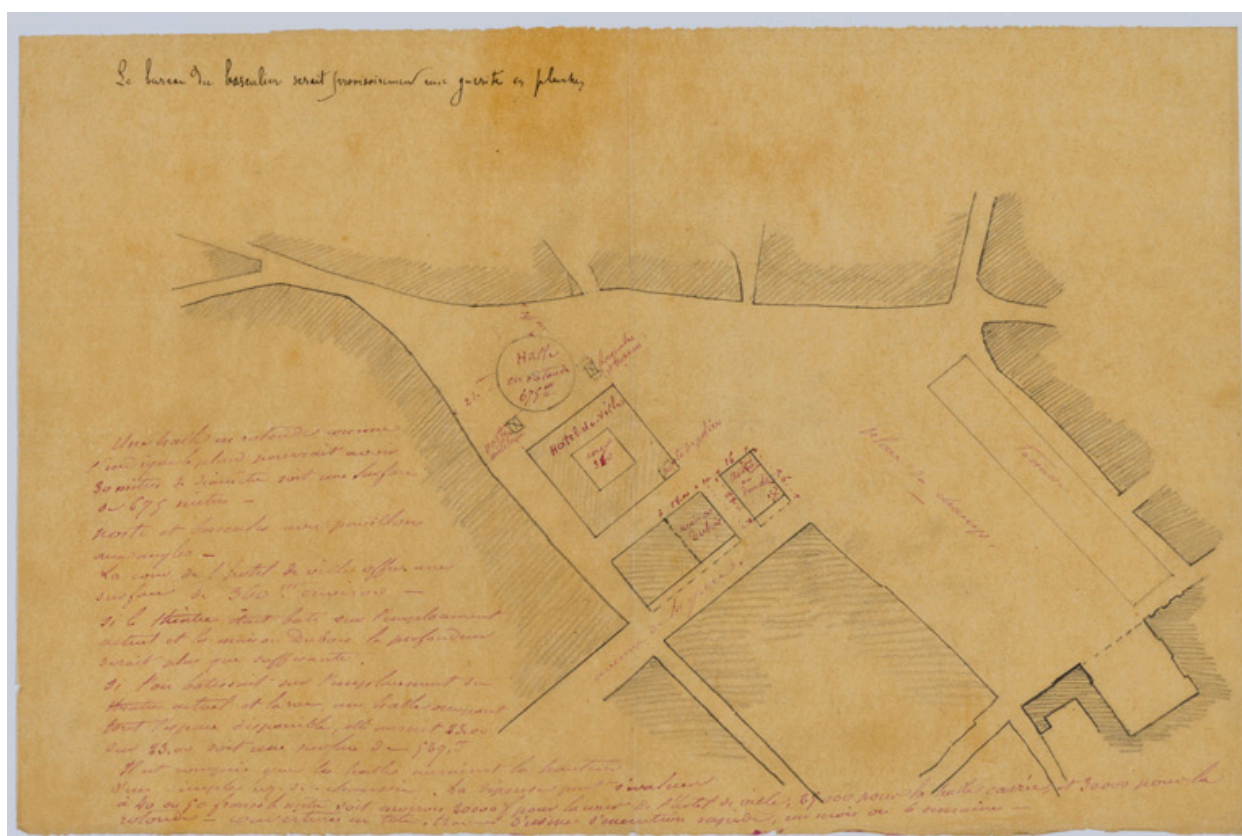 Le bureau du basculier serait provisoirement une guérite en planches
Halle
en rotonde
675 m
21
Hotel de ville
cour
360
maison
Dubois
Place du champ
Une halle en rotonde comme
l'indique le plan pourrait avoir
30 mètres de diamètre soit une surface
de 675 mètres —
poste et bascule avec pavillons
aux angles —
La cour de l'hotel de ville offre une
surface de 360 m environ —
Si le théâtre était bati sur l'emplacement
actuel et la maison Dubois la profondeur
serait plus que suffisante.
Si l'on batissait sur l'emplacement du
théatre actuel et la rue, une halle occupant
tout l'espace disponible, elle aurait 23.00
sur 23.00 soit une surface de 529 m
Il est compris que les halles auraient la hauteur
d'un rez-de-chaussée. La dépense peut s'évaluer
à 40 ou 50 francs le mètre soit environ 20000 f pour la cour de l'hotel de ville, 25,000 pour la halle carrée, et 30000 pour la
rotonde — couvertures en tole, d'exécution rapide, un mois ou 6 semaines —